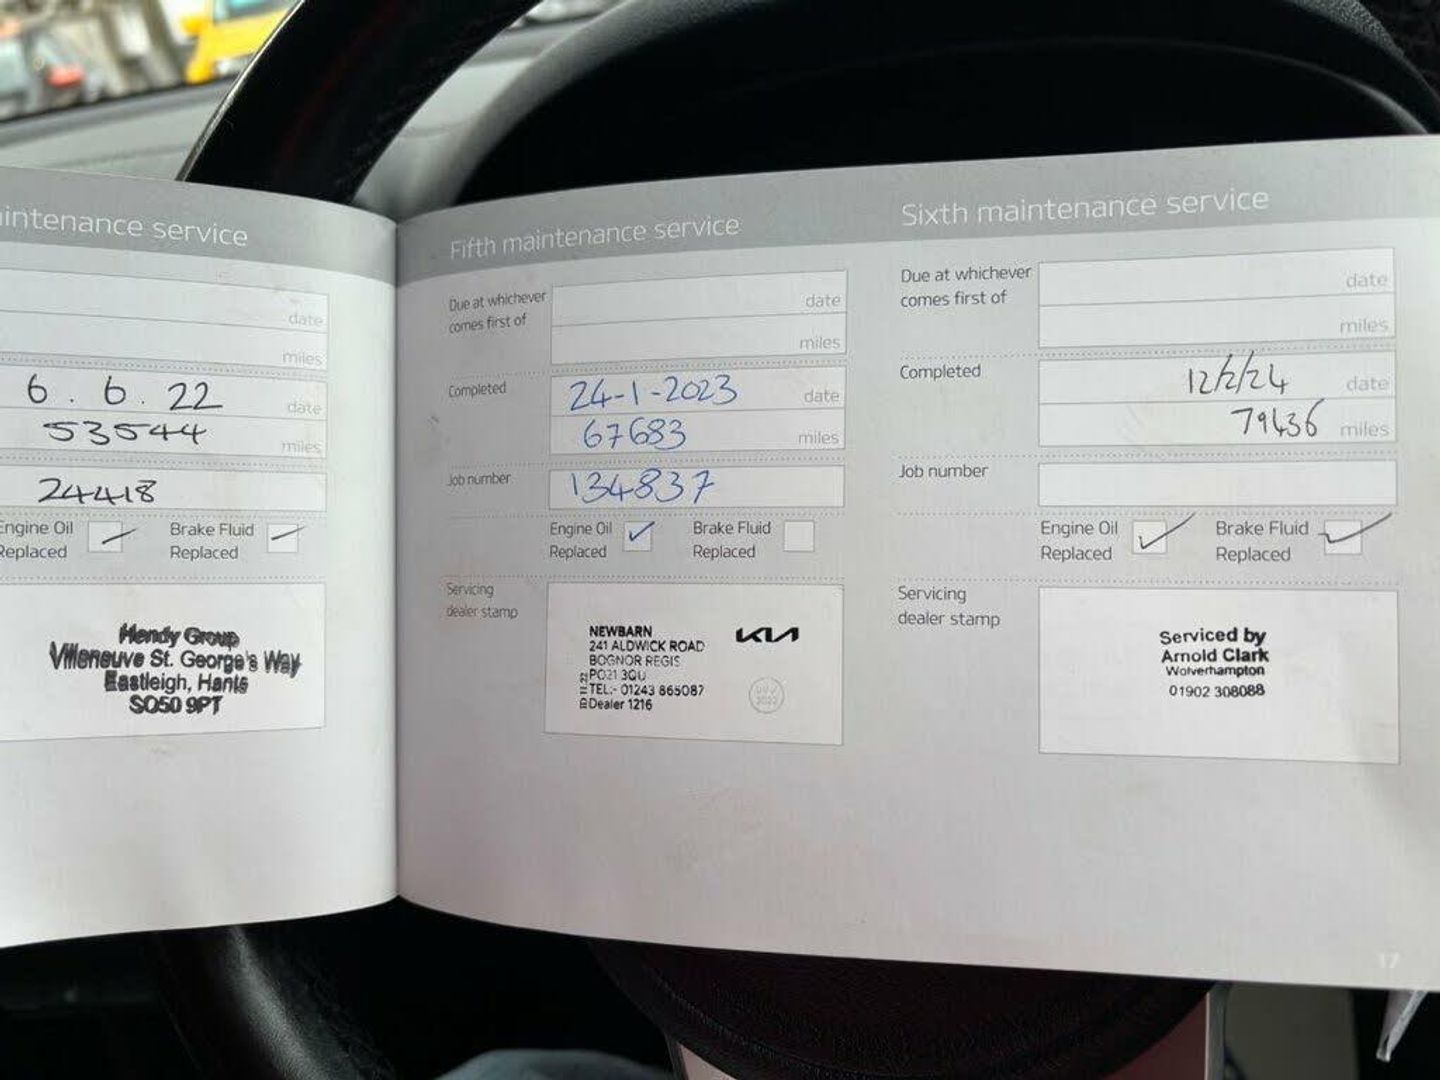 intenance service
date
miles
6 . 6 . 22
date
53544
miles
24418
Engine Oil
Replaced
Brake Fluid
Replaced
Hendy Group
Villeneuve St. George's Way
Eastleigh, Hants
SO50 9PT
Fifth maintenance service
Due at whichever
comes first of
date
miles
Completed
24-1-2023
date
67683
miles
Job number
134837
Engine Oil
Replaced
Brake Fluid
Replaced
Servicing
dealer stamp
NEWBARN
241 ALDWICK ROAD
BOGNOR REGIS
PO21 3QU
TEL:- 01243 865087
Dealer 1216
KIA
Sixth maintenance service
Due at whichever
comes first of
date
miles
Completed
12/2/24
date
79436
miles
Job number
Engine Oil
Replaced
Brake Fluid
Replaced
Servicing
dealer stamp
Serviced by
Arnold Clark
Wolverhampton
01902 308088
17